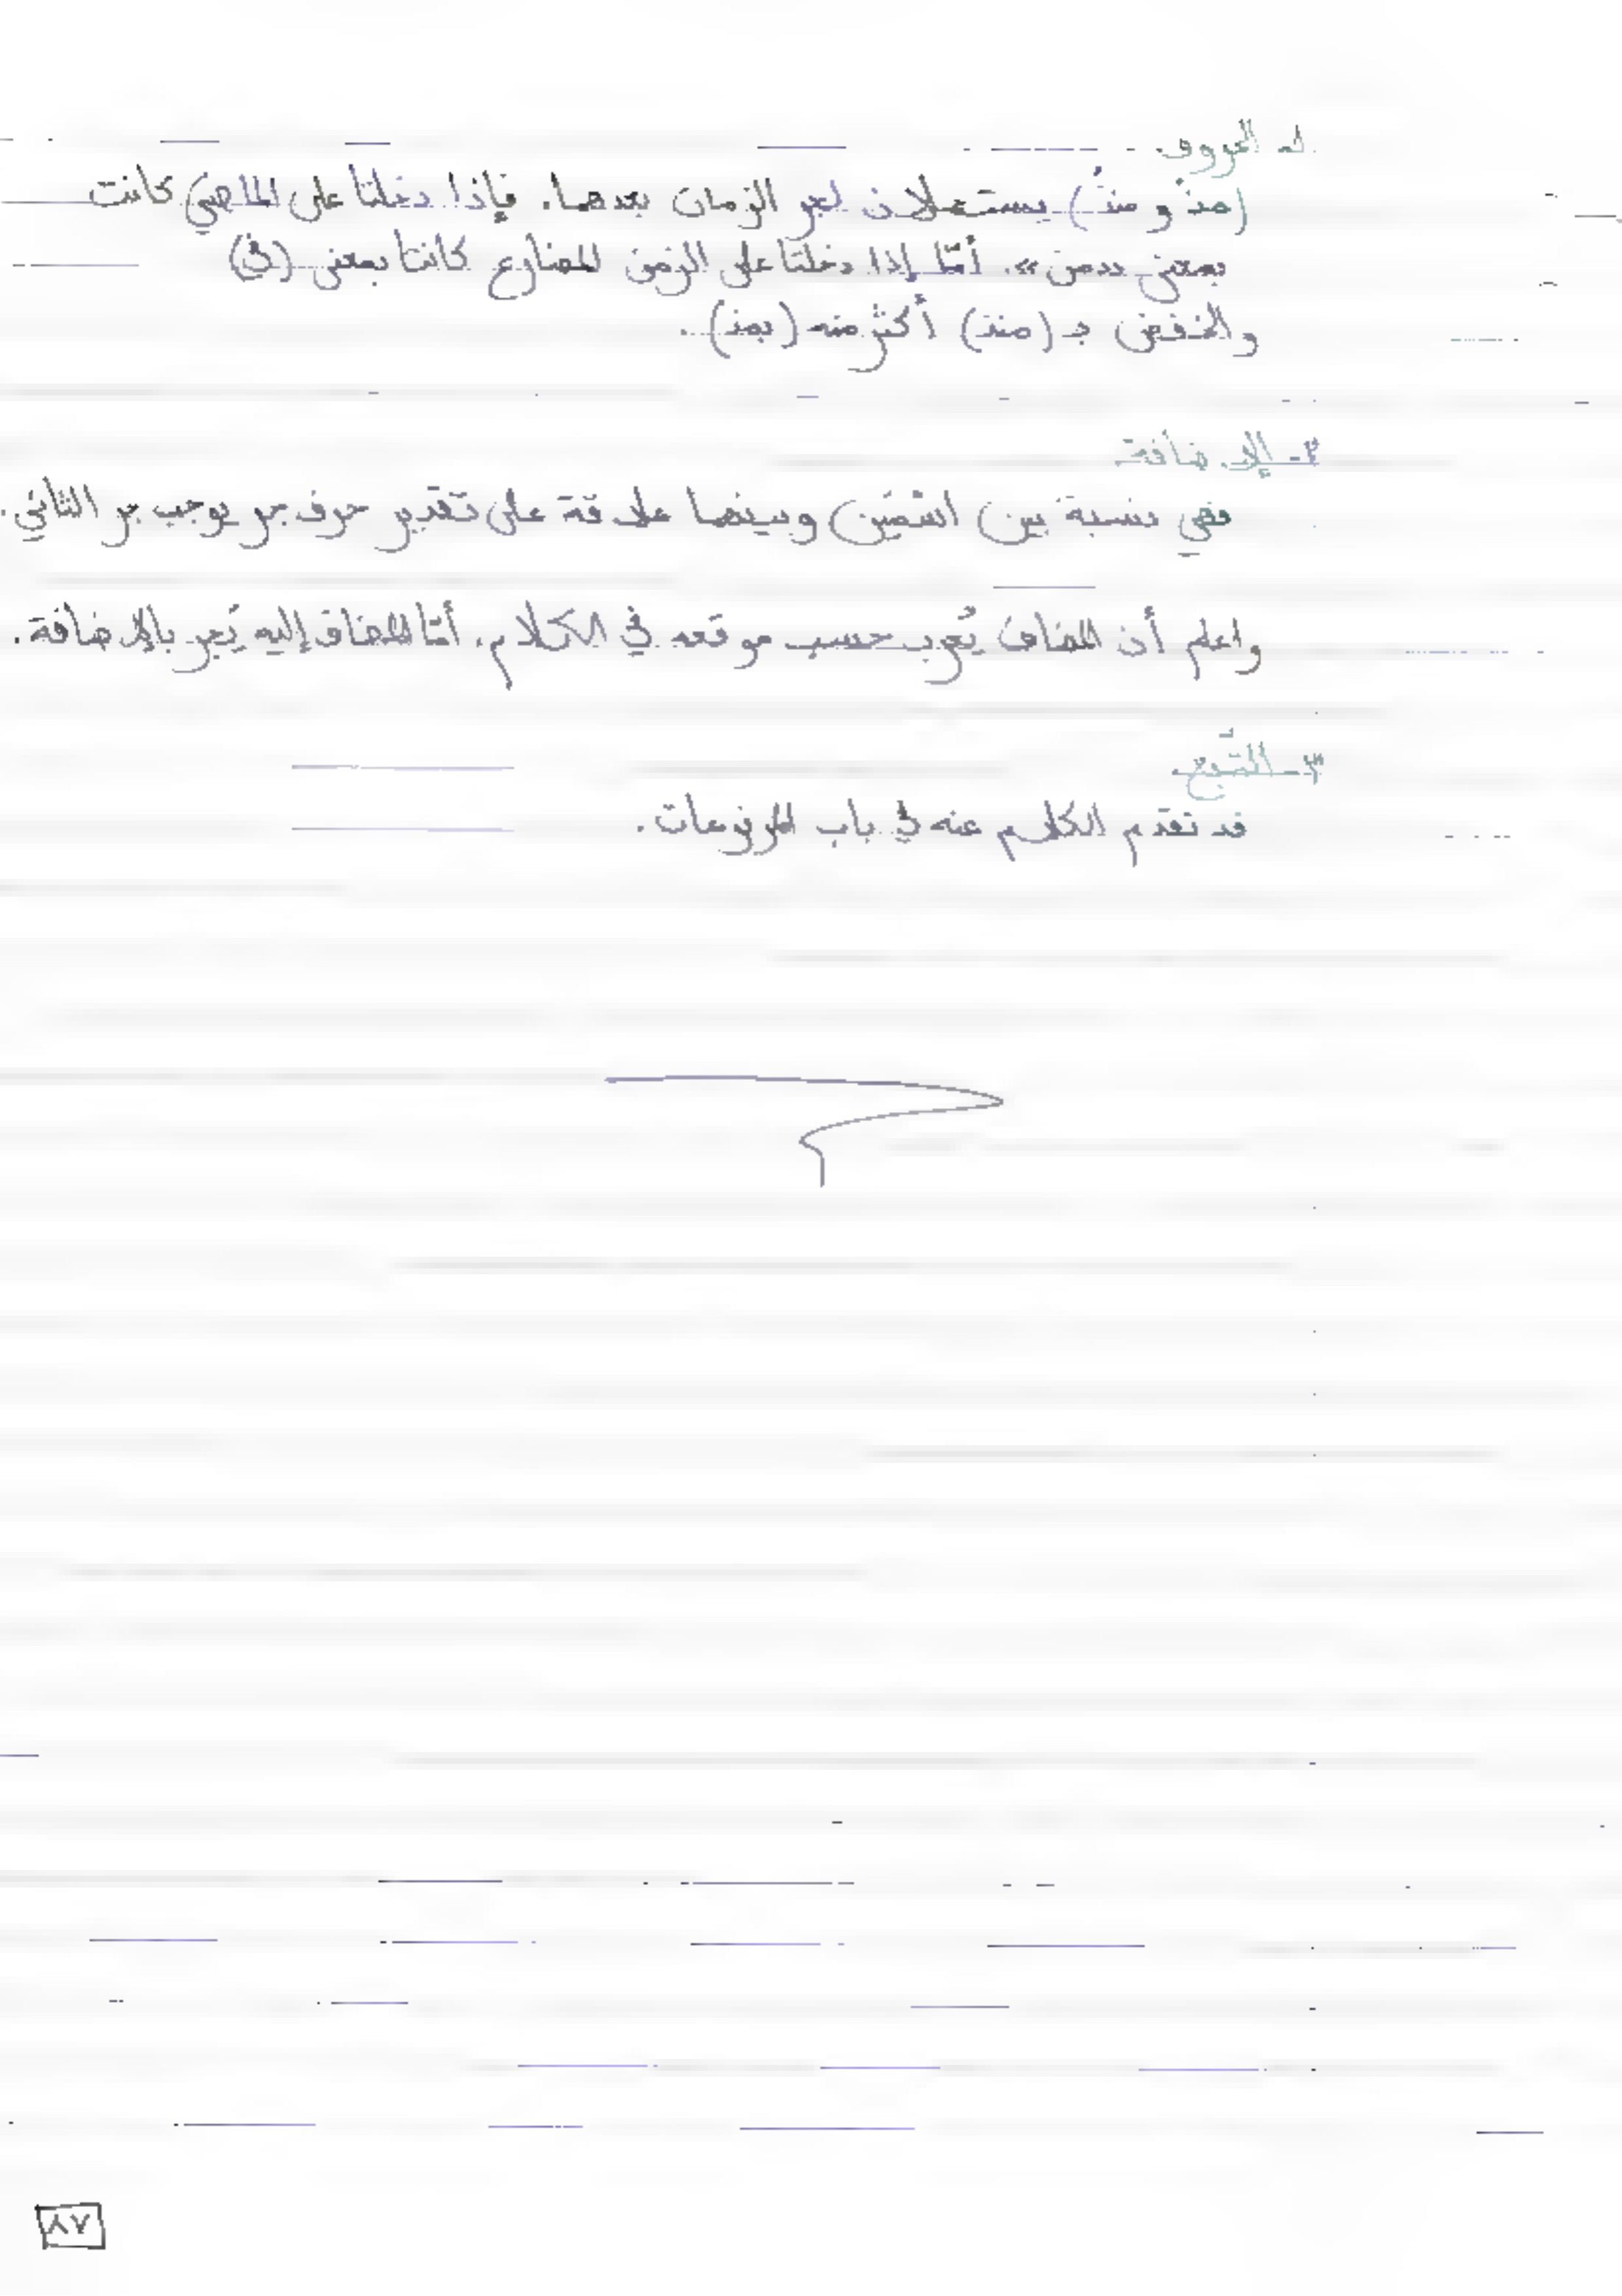 ١ـ الحروف.
(مذ و منذُ) يستعملان لجر الزمان بعدهما. فإذا دخلتا على الماضي كانت
بمعنى «من». أمّا إذا دخلتا على الزمن المضارع كانتا بمعنى (في)
والخفض بـ (منذ) أكثر منه (بمذ).
٢ـ الإضافة
فهي نسبة بين اسْمَين وبينهما علاقة على تقدير حرف جر يوجب جر الثاني.
واعلم أن المضاف يُعرب حسب موقعه في الكلام. أمّا المضاف إليه يُجر بالإضافة.
٣ـ التّبع.
قد تقدم الكلام عنه في باب المرفوعات.
٨٧